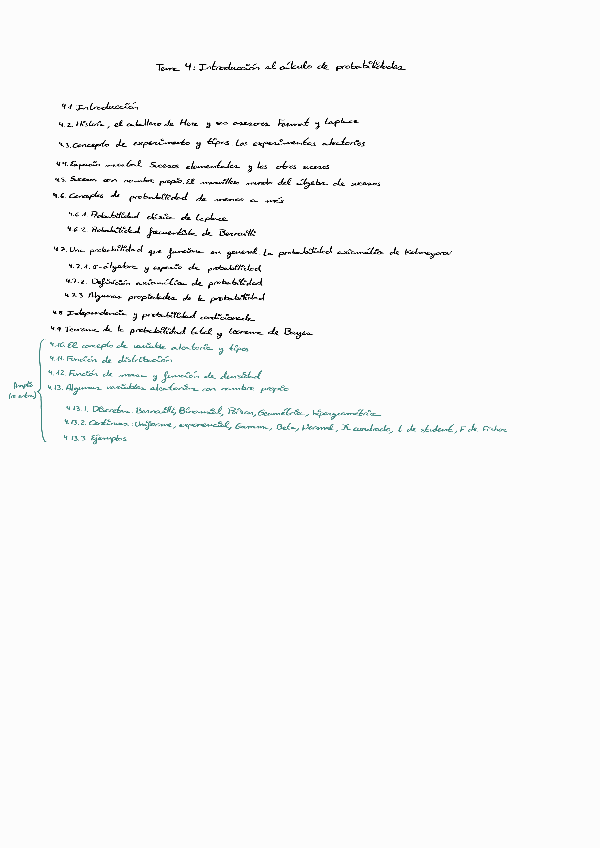 Tema 4: Introducción al cálculo de probabilidades
4.1 Introducción
4.2. Historia, el caballero de Mere y sus asesores Fermat y Laplace
4.3. Concepto de experimento y tipos. Los experimentos aleatorios
4.4. Espacio muestral. Sucesos elementales y los otros sucesos
4.5. Sucesos con nombre propio. El maravilloso mundo del álgebra de sucesos
4.6. Conceptos de probabilidad de menos a más
4.6.1. Probabilidad clásica de Laplace
4.6.2. Probabilidad frecuentista de Bernoulli
4.7. Una probabilidad que funciona en general. La probabilidad axiomática de Kolmogorov
4.7.1. σ-álgebra y espacio de probabilidad
4.7.2. Definición axiomática de probabilidad
4.7.3 Algunas propiedades de la probabilidad
4.8 Independencia y probabilidad condicionada
4.9 Teorema de la probabilidad total y teorema de Bayes
4.10. El concepto de variable aleatoria y tipos
4.11. Función de distribución
4.12 Función de masa y función de densidad
4.13. Algunas variables aleatorias con nombre propio
4.13.1. Discretas: Bernoulli, Binomial, Poisson, Geométrica, Hipergeométrica
4.13.2. Continuas: Uniforme, exponencial, Gamma, Beta, Normal, χ cuadrado, t de student, F de Fisher
4.13.3 Ejemplos